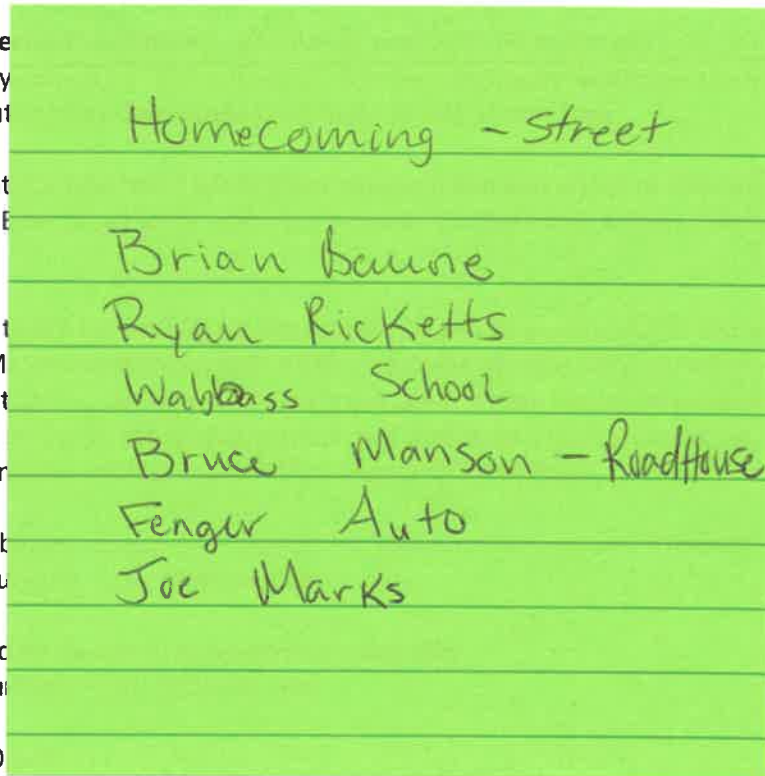 Homecoming - Street
Brian Baune
Ryan Ricketts
Wabbass School
Bruce Manson - RoadHouse
Fenger Auto
Joe Marks